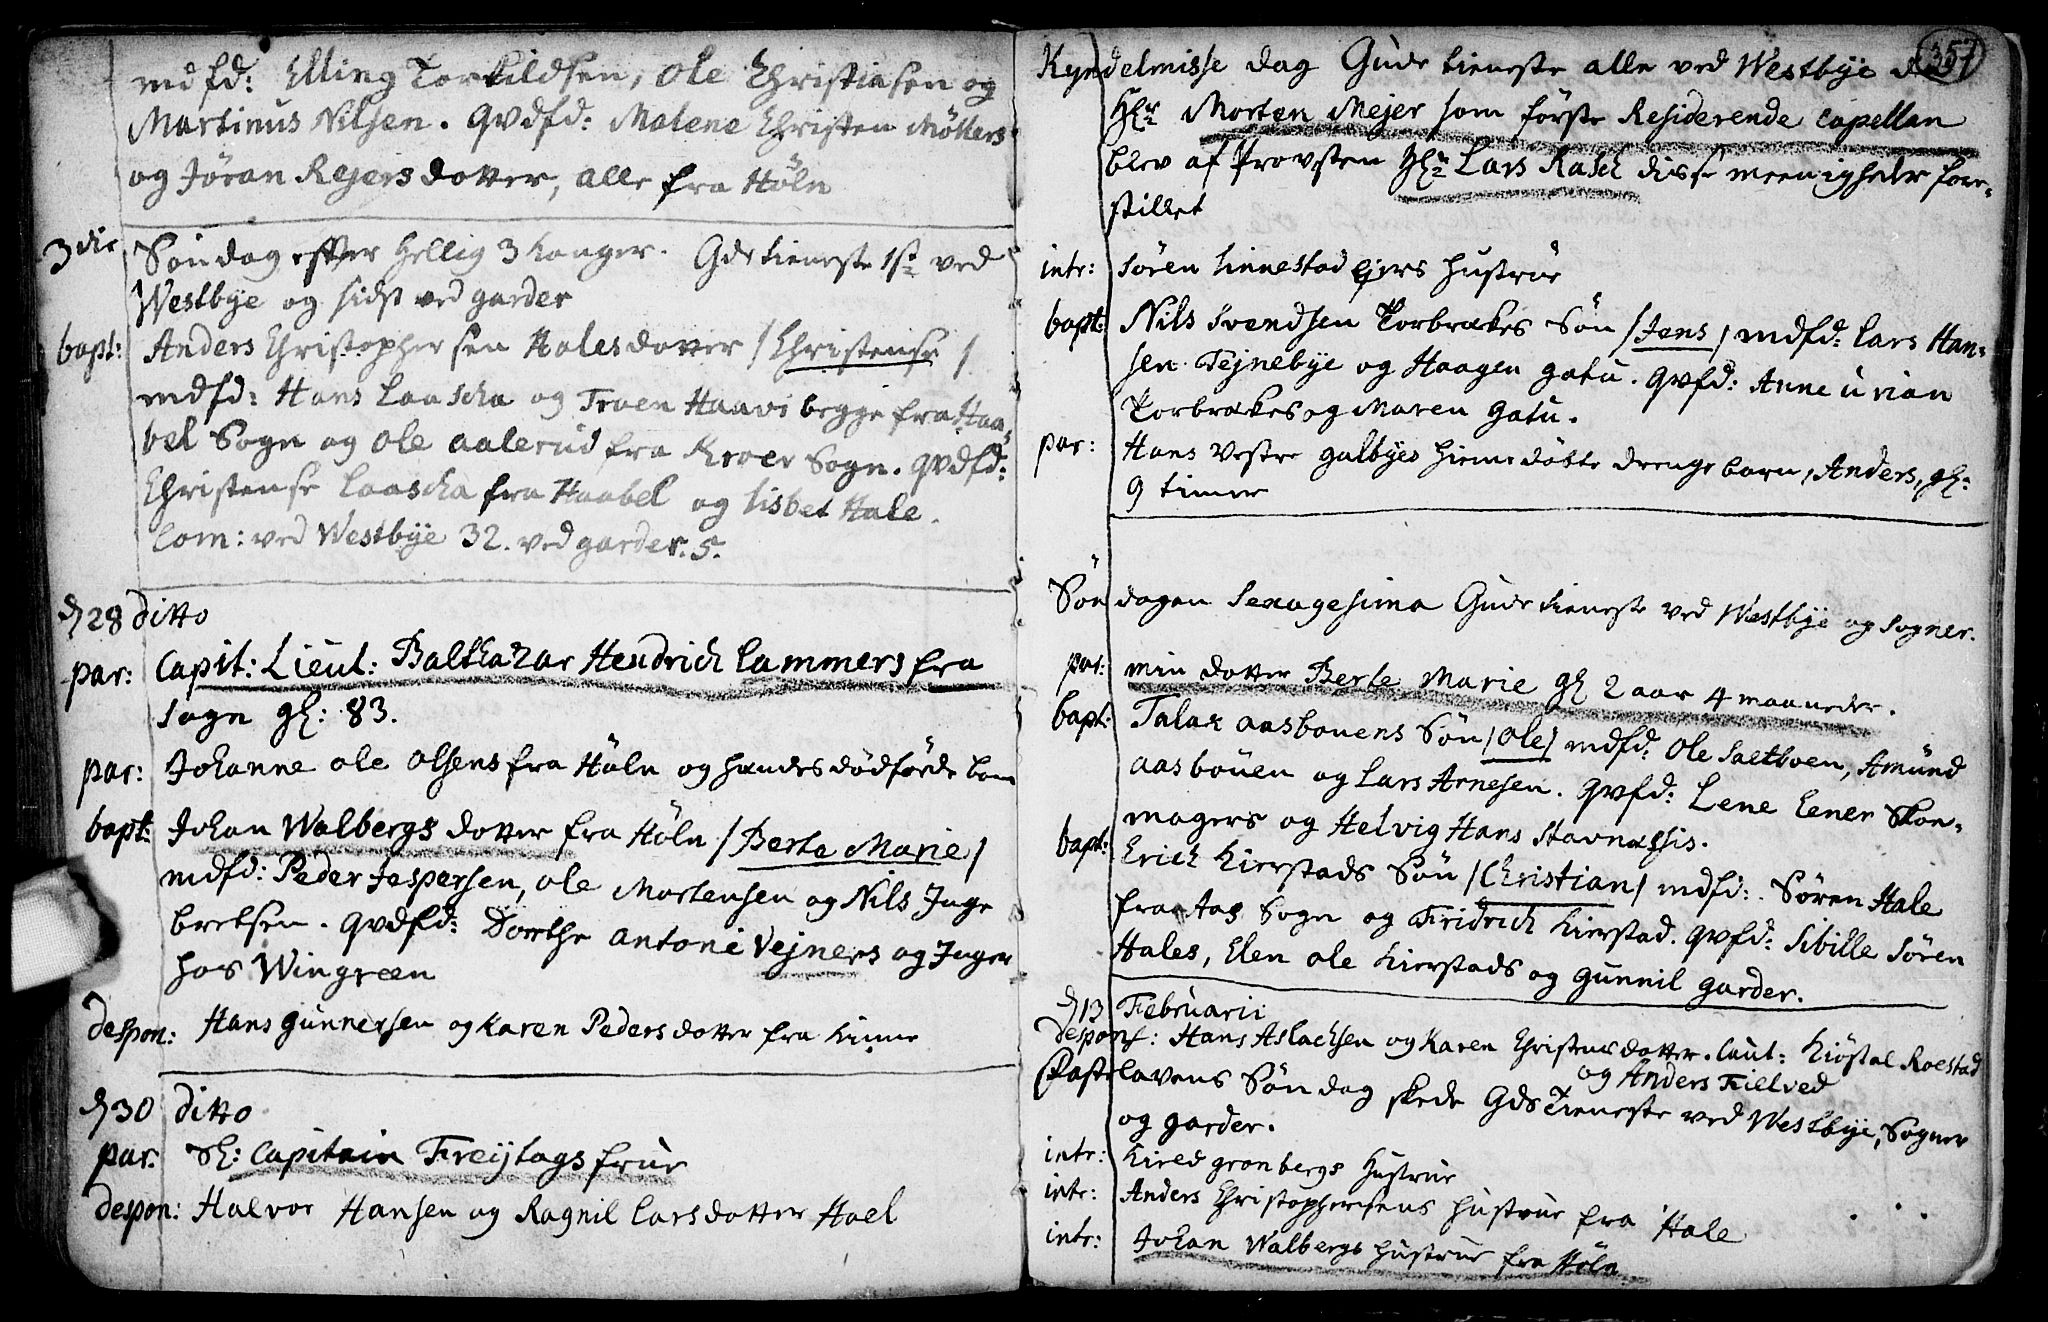 mdfd: Elling Torkildsen, Ole Christiansen og
Martinus Nilsen. Qvdfd: Malene Christen Møllers
og Jöran Rejersdotter, alle fra Höln
3die Söndag efter Hellig 3 Konger. Gds tieneste 1st ved
Westbÿe og sidst ved garder
bapt: Anders Christophersen Holes dotter / Christense /
mdfd: Hans Laascha og Troen Haavi begge fra Haa-
bel Sogn og Ole aalerud fra Kroer Sogn. qvdfd:
Christense Laascha fra Haabel og Lisbet Hale.
Com: ved Westbÿe 32. ved garder. 5.
d 28 ditto
par: Capit: Lieut: Balthazar Hendrich Lammers fra
Sogn gl: 83.
par: Johanne Ole Olsens fra Höln og hendes dödförde barn
bapt: Johan Walbergs dotter fra Höln / Berte Marie /
mdfd: Peder Jespersen, Ole Mortensen og Nils Inge
bretsen. qvdfd: Dorthe Antoni Vejners og Inger
hos Wingreen
despon: Hans Gunnersen og Karen Pedersdotter fra Kinne
d 30 ditto
par. Sl: Capitain Freÿtags frue
despon: Halvor Hansen og Ragnil Larsdotter Hoel
357
Kyndelmisse dag Guds tieneste alle ved Westbÿe
Hr Morten Mejer som förste Residerende Capellan
blev af Provsten Hr Lars Rasch disse meenigheder fore-
stillet
intr: Sören Linnestad ejers hustrue
bapt: Nils Svendsen Torbrækes Sön / Jens / mdfd: Lars Han-
sen Tejnebÿe og Haagen gatu. qvfd: Anne Urian
Torbrækes og Maren Gatu.
par: Hans Vestre galbyes hiemedöbte drengebarn, Anders, gl:
9 timer
Söndagen Sexagesima Guds tieneste ved Westbÿe og Sogner.
par: min dotter Berte Marie gl 2 aar 4 maaneder.
bapt: Talax aasbouens Sön / Ole / mdfd: Ole Saltboen, Amünd
aasboüen og Lars Arnesen. qvfd: Lene Ener Skoe-
magers og Helvig Hans Stavnæssis.
bapt: Erich Kierstads Sön / Christian / mdfd: Sören Hale
fra Aas Sogn og Fridrich Kierstad. qvfd: Sibille Sören
Hales, Elen Ole Kierstads og Gunnil garder.
d 13 Februarii
desponf: Hans Aslachsen og Karen Christensdotter. Caut: Kiöstal Roestad
og Anders Fielved
Fastelavens Söndag skede Gds Tieneste ved Westbÿe, Sogner
og garder.
intr: Kired gronbergs Hustrue
intr: Anders Christophersens hustrue fra Hole
intr: Johan Walbergs hustrue fra Höln